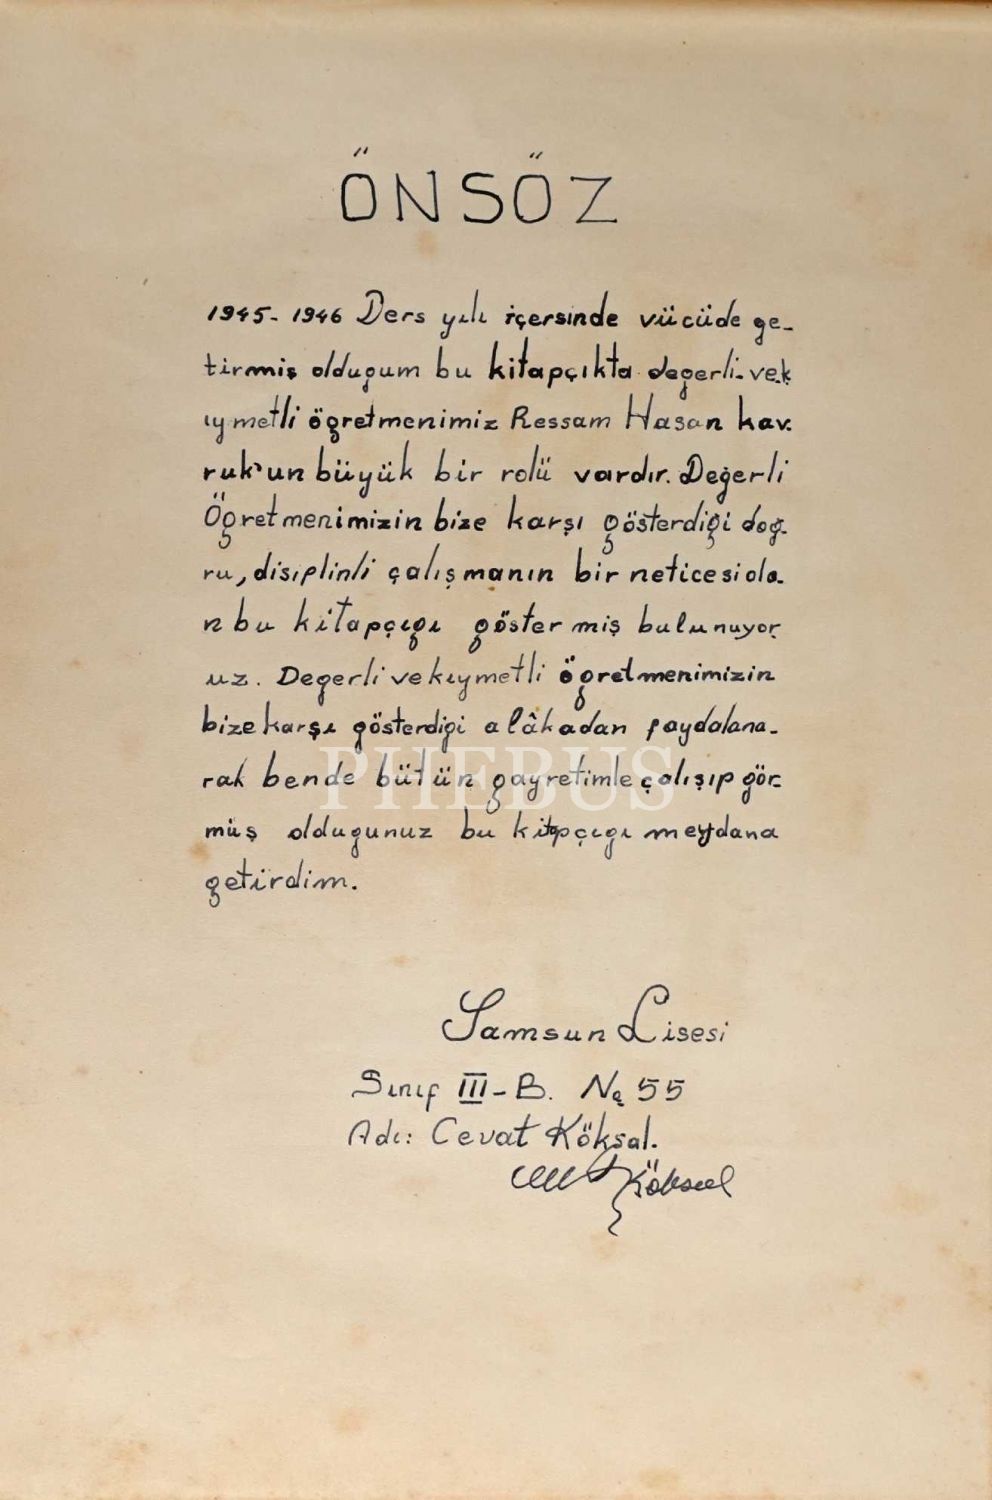 ÖNSÖZ
1945-1946 Ders yılı içersinde vücüde ge-
tirmiş oldugum bu kitapçıkta degerli-vek
ıymetli ögretmenimiz Ressam Hasan kav.
ruk'un büyük bir rolü vardır. Değerli
Ögretmenimizin bize karşı gösterdiği doğ-
ru, disıplinli çalışmanın bir neticesi ola-
n bu kitapçıgı göster miş bulunuyor
uz. Degerli ve kıymetli ögretmenimizin
bize karşı gösterdigi alâkadan faydalana-
rak bende bütün gayretimle çalışıp gör-
müş oldugunuz bu kitapçıgı meydana
getirdim.
Samsun Lisesi
Sınıf III-B. No 55
Adı: Cevat Köksal.
Köksal
PHEBUS